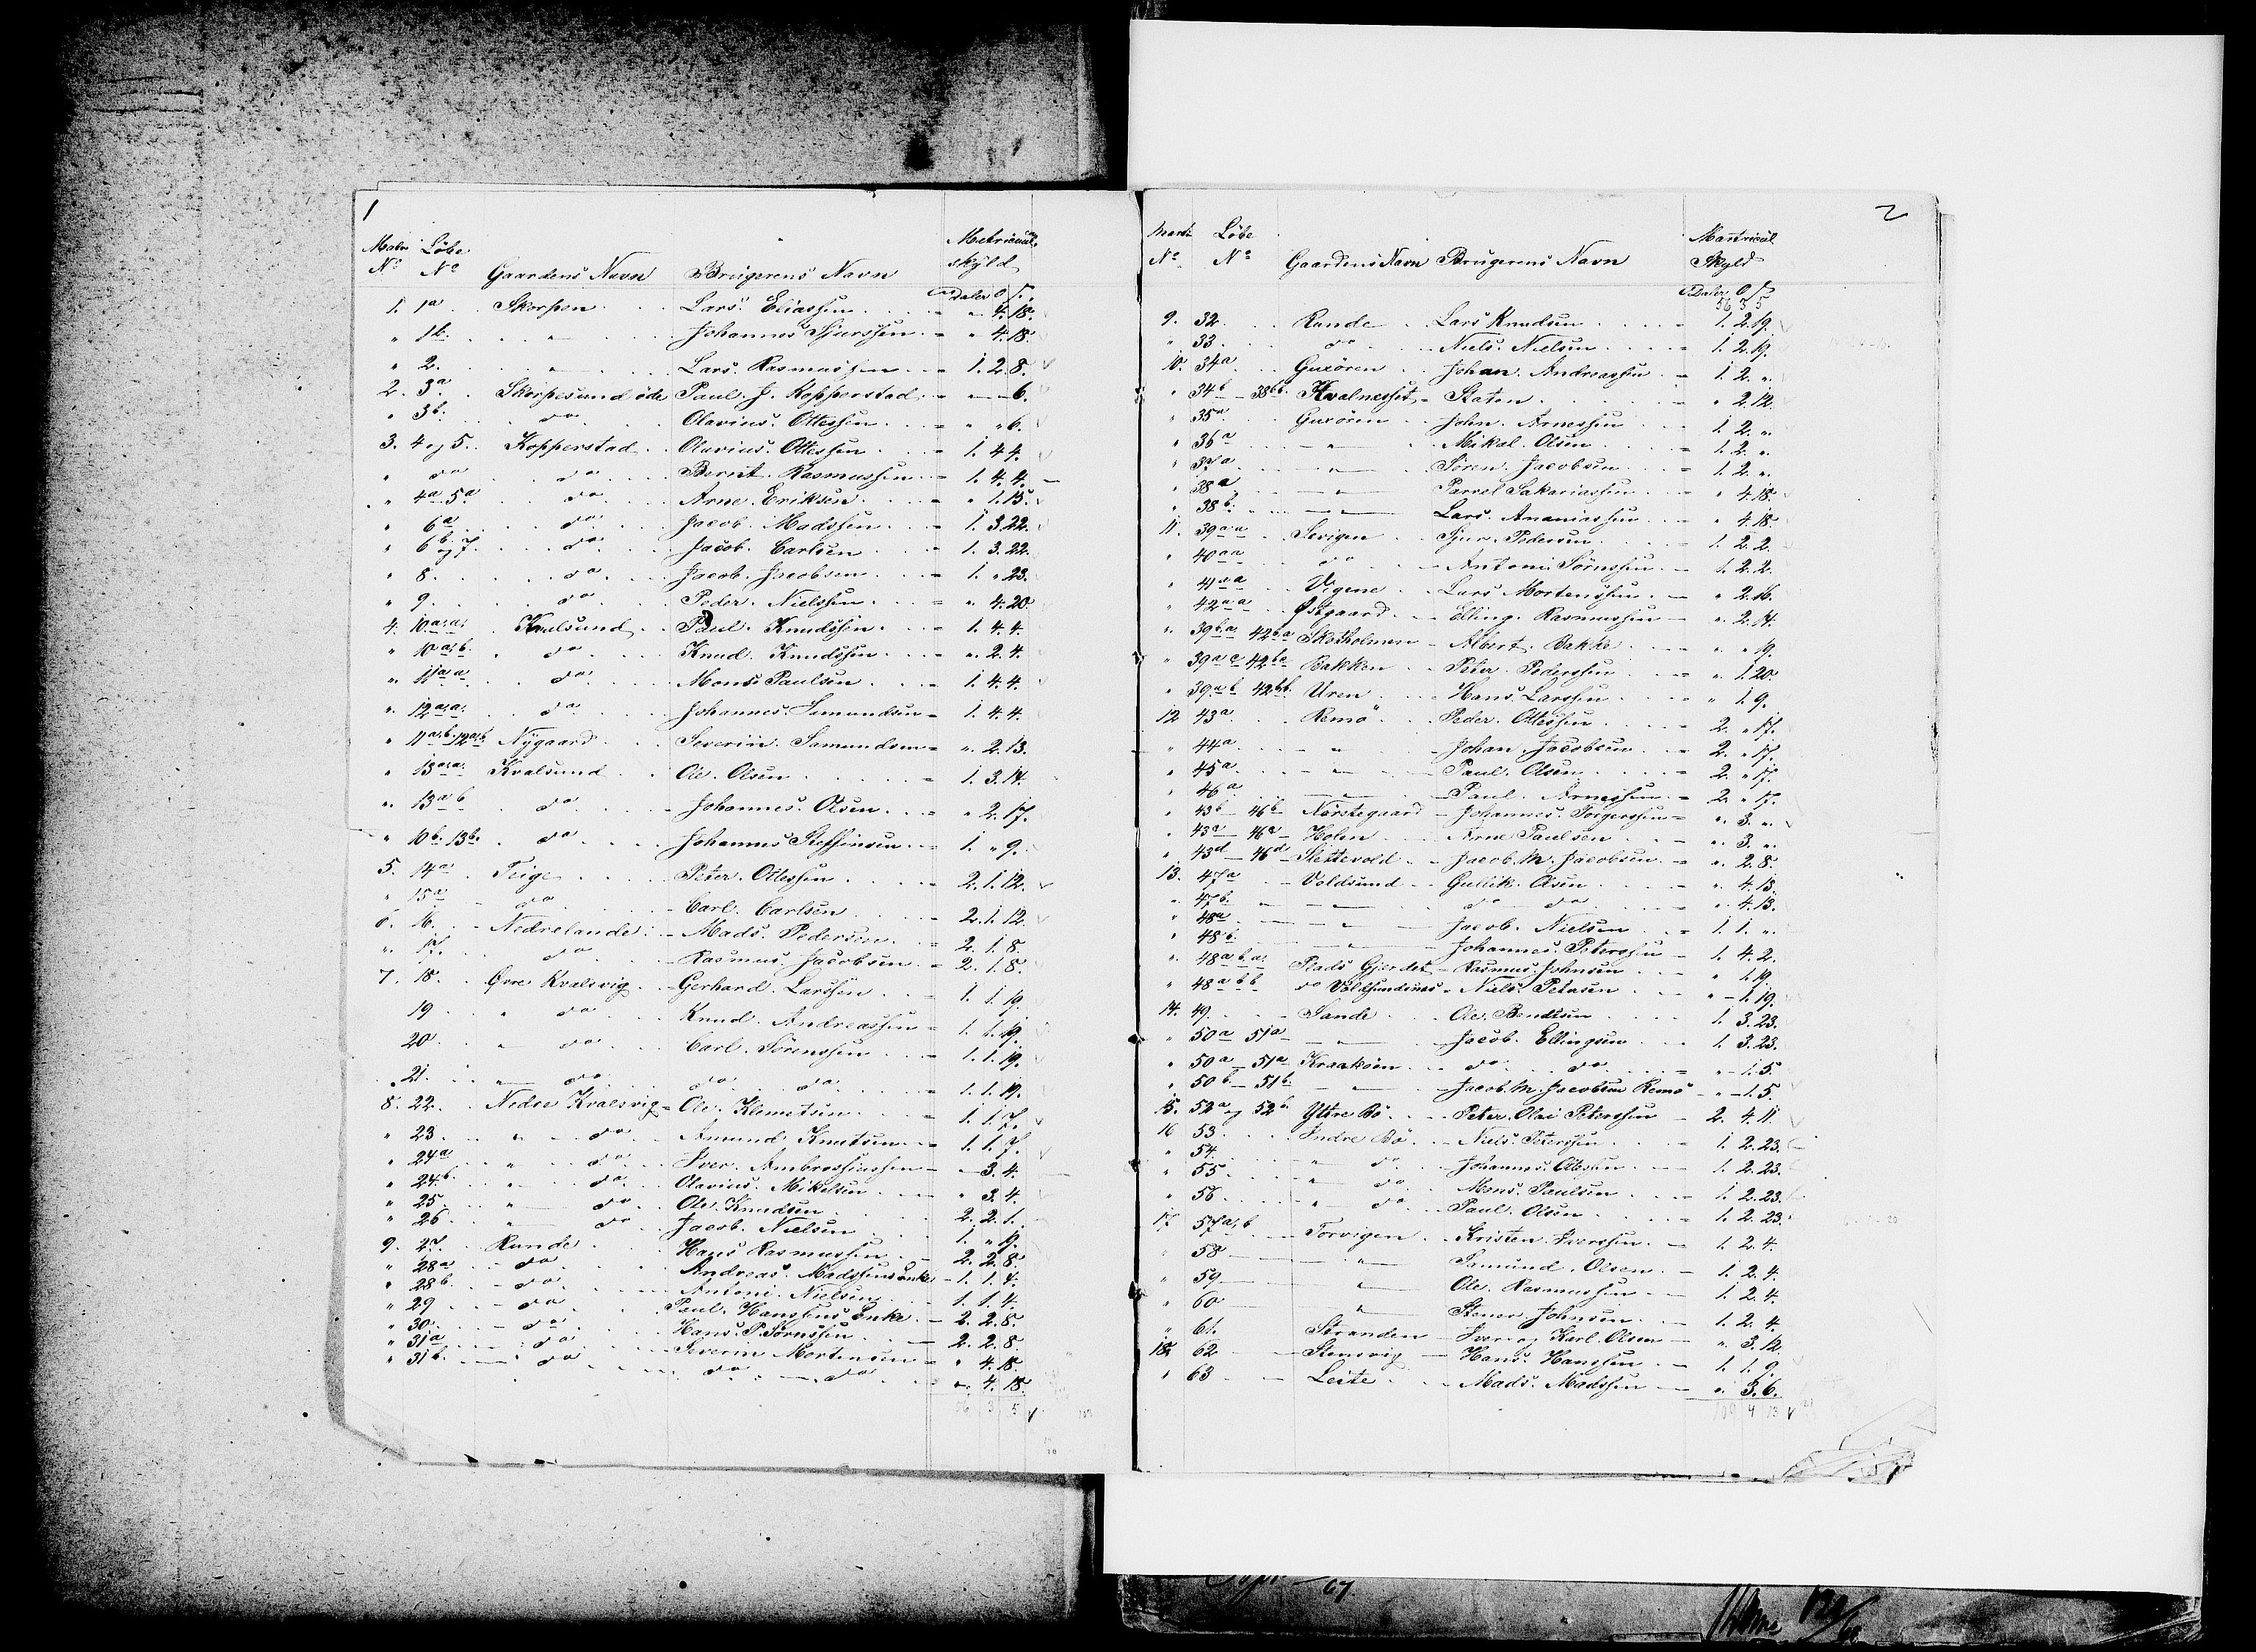 1
Matr Løbe Matricul
No No Gaardens Navn Brugerens Navn skyld
Daler O S.
1. 1a Skorpen Lars Eliassen " 4. 18.
" 1b. " Johannes Sjurssen " 4. 18.
" 2. " Lars Rasmussen 1. 2. 8.
2. 3a Skorpesund øde Paul J. Kopperstad " " 6.
" 3b. do Olavius Ottessen " " 6.
3. 4 og 5. Kopperstad Olavius Ottessen 1. 4 4.
" do do Berit Rasmussen 1. 4. 4.
" 4a 5a do Arne Eriksen " 1. 15.
" 6a do Jacob Madssen 1. 3 22.
" 6b og 7. do Jacob Carlsen 1. 3. 22.
" 8. do Jacob Jacobsen 1. " 23.
" 9. do Peder Nielssen " 4. 20.
4. 10a,a. Kvalsund Paul Knudssen 1. 4. 4.
" 10a,b. do Knud Knudssen " 2. 4.
" 11a,a do Mons Paulsen 1. 4. 4.
" 12a,a. do Johannes Samundsen 1. 4. 4.
" 11a,b. 12a,b. Nygaard Severin Samundsen " 2. 13.
" 13a,a. Kvalsund Ole Olsen 1. 3. 14.
" 13a b do Johannes Olsen " 2. 17.
" 10b. 13b. do Johannes Steffensen 1. " 9.
5. 14a Teige Peter Ottessen 2. 1. 12.
" 15a do Carl Carlsen 2. 1. 12.
6. 16. Nedrelande Mads Pedersen 2. 1. 8.
" 17. do Rasmus Jacobsen 2. 1. 8.
7. 18. Øvre Kvalsvig Gerhard Larssen 1. 1. 19.
19 " do Knud Andreassen 1. 1. 19.
20 " do Carl Sørenssen 1. 1. 19.
21. " do do do 1. 1. 19.
8. 22. Nedre Kvalsvig Ole Klemetsen 1. 1. 7.
" 23. " do Amund Knutsen 1. 1. 7.
" 24a " do Iver Ambrossiussen " 3. 4.
" 24b. " do Olavius Mikelsen " 3. 4.
" 25. " do Ole Knudsen 2. 2. 1.
" 26. " do Jacob Nielsen 1. " 19.
9. 27. Runde Hans Rasmussen 2. 2. 8.
" 28a do Andreas Madssens Enke 1. 1. 4.
" 28b do Antoni Nielsen 1. 1. 4.
" 29 do Paul Hanssens Enke 2. 2. 8.
" 30. do Hans P. Sørnssen 2. 2. 8.
" 31a do Severin Mortensen " 4. 18.
" 31b. do do do " 4. 18.
56 3 5
2
Matr Løbe Mastricul
No No Gaardens Navn Brugerens Navn Skyld
Daler O S
56 3 5
9. 32. Runde Lars Knudsen 1. 2. 19.
" 33. do Niels Nielsen 1. 2. 19.
10. 34a Guxøren Johan Andreassen 1. 2. "
" 34b - 38bb. Kvalnesset Staten " 2. 12.
" 35a Guxøren John Arnessen 1. 2. "
" 36a " Mikal Olsen 1. 2. "
" 37a " Søren Jacobsen 1. 2. "
" 38a " Parvel Sakariassen " 4. 18.
" 38b. " Lars Ananiassen " 4. 18.
11. 39a a Sevigen Sjur Pedersen 1. 2. 2.
" 40a a do Antoni Sørnssen 1. 2. 2.
" 41a a Vigene Lars Mortenssen " 2. 16.
" 42a a Østgaard Elling Rasmussen " 2. 14.
" 39b.a. 42b.a Skotholmen Albert Bakke " " 19.
" 39a c 42b c Bakken Peter Pederssen " 1. 20.
" 39a b 42b b. Uren Hans Larssen " 1. 9.
12 43a Remø Peder Ottessen 2. " 17.
" 44a " Johan Jacobsen 2. " 17.
" 45a " Paul Olsen 2. " 17.
" 46a " Paul Arnessen 2. " 17.
" 43b - 46b Nørstegaard Johannes Torgerssen " 3. "
" 43a - 46a Holen Arne Paulsen " 3. "
" 43d - 46d Slettevold Jacob M. Jacobsen " 2. 8.
13. 47a Voldsund Gullik Olsen " 4. 13.
" 47b. " do do " 4. 13.
" 48a " Jacob Nielsen 1. 1. "
" 48b. " Johannes Peterssen 1. 4. 2.
" 48a b a. Plads Gjerdet Rasmus Johnsen " 1. 19.
" 48a b b do Voldsundnes Niels Petersen " 1. 19.
14. 49. Sande Ole Bendtsen 1. 3. 23.
" 50a 51a " Jacob Ellingsen 1. 3. 23.
" 50a - 51a Kraakøen do do " 1. 5.
" 50b - 51b. " Jacob M. Jacobsen Remø " 1. 5.
15. 52a og 52b. Yttre Bø Peter Olai Peterssen 2. 4. 11.
16 53. Indre Bø Niels Peterssen 1. 2. 23.
" 54. " do Johannes Ottessen 1. 2. 23.
" 55. " do Mons Paulsen 1. 2. 23.
" 56. " do Paul Olsen 1. 2. 23.
17 57a,b Torvigen Kristen Iverssen 1. 2. 4.
" 58 " Samund Olsen 1. 2. 4.
" 59 " Ole Rasmussen 1. 2. 4.
" 60 " Stener Johnsen 1. 2. 4.
" 61. Stranden Iver og Karl Olsen " 3. 12.
18. 62 Stensvig Hans Hanssen 1. 1. 9.
" 63 Leite Mads Madssen " 3. 6.
109 4 13